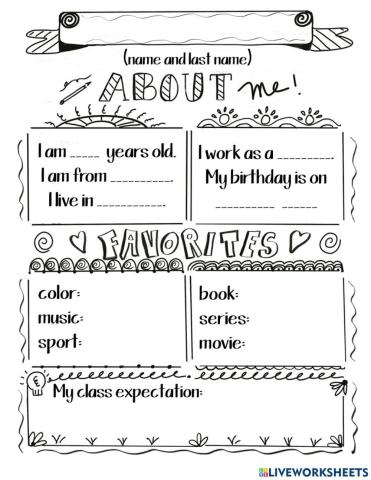 (name and last name)
ABOUT me!
I am _____ years old.
I am from __________.
I live in ___________.
I work as a _________.
My birthday is on
__________ ______
FAVORITES
color:
music:
sport:
book:
series:
movie:
My class expectation:
LIVEWORKSHEETS